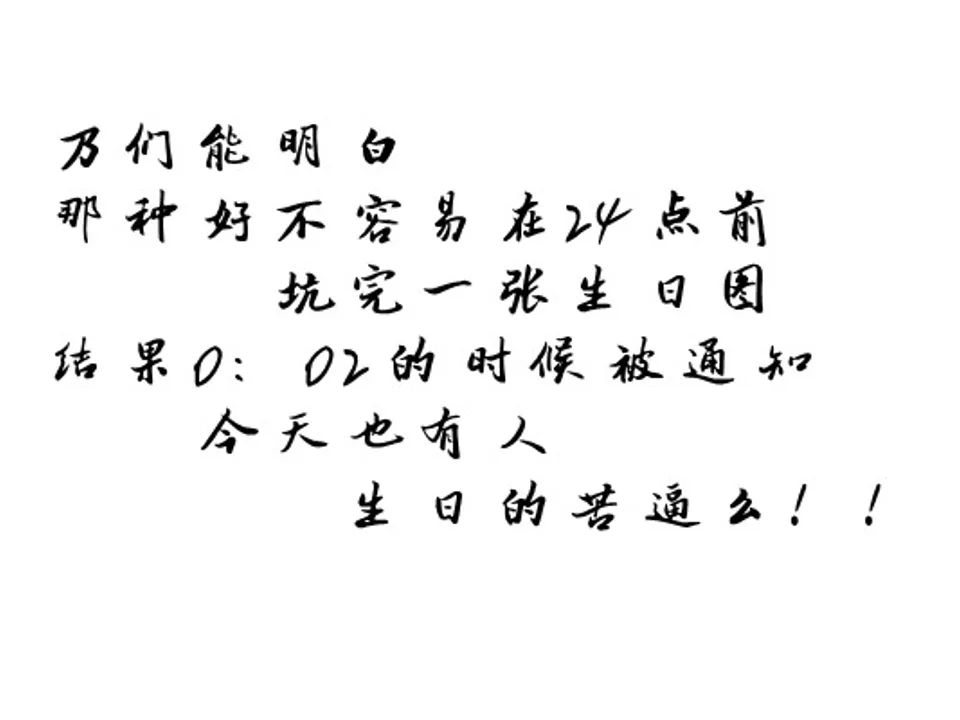 乃们能明白
那种好不容易在24点前
坑完一张生日图
结果0：02的时候被通知
今天也有人
生日的苦逼么！！